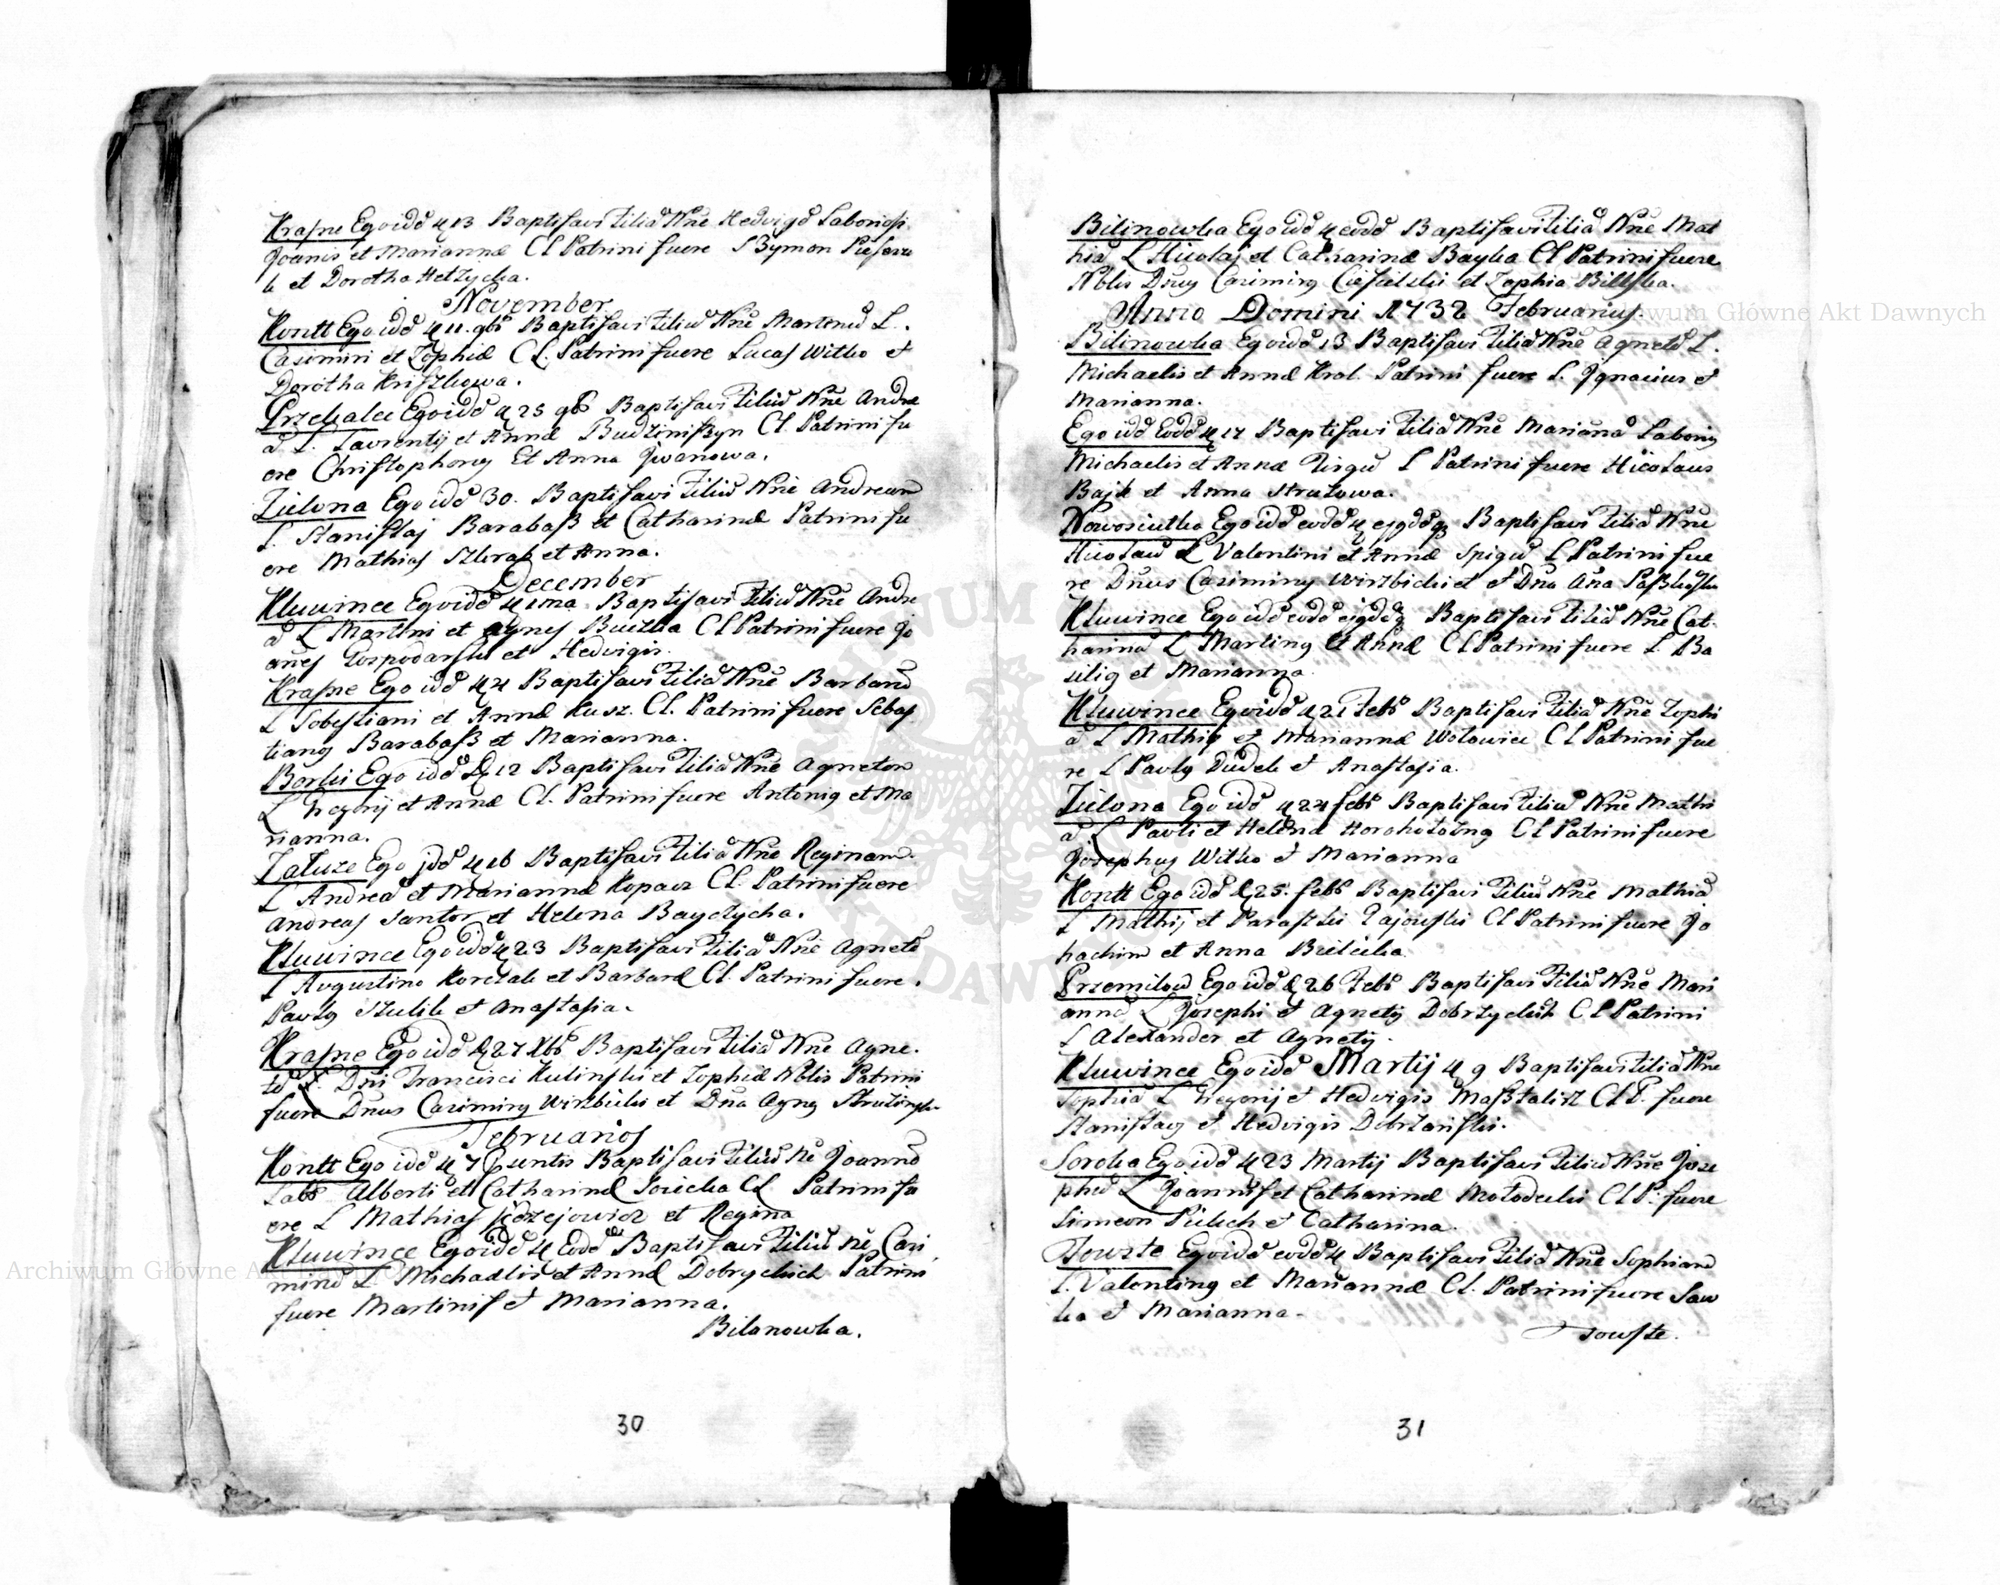 Krasne Ego idd 13 Baptisavi Filiā Nñe Hedvigē Laboriosi
Joanis et Mariannæ CL Patrini fuere Szymon
k et Dorotha Hetzycka.
November
Kontt Ego idd 11 9bs Baptisavi Filiū Nñe Martinū L.
Casimiri et Zophiæ CL. Patrini fuere Lucas Witko et
Dorotha Kriszkowa.
Przekalec Ego idd 25 9bs Baptisavi Filiū Nñe Andre
ā L. Laurentij et Annæ Budziniszyn CL Patrini fu
ere Christophorq Et Anna Jwanowa.
Zielona Ego idd 30. Baptisavi Filiū Nñe Andream
L. Stanislaj Barabasz et Catharinæ Patrini fu
ere Mathias et Anna.
December
Kluwince Ego idd 1ma Baptisavi Filiū Nñe Andre
ā L Martini et Agnes CL Patrini fuere Jo
anes Gospodarski et Hedvigis.
Krasne Ego idd 4 Baptisavi Filiā Nñe Barbarā
L Sobestiani et Annæ Kusz. CL. Patrini fuere Sebas
tianq Barabasz et Marianna.
Borki Ego idd 12 Baptisavi Filiā Nñe Agneten
L Gregorij et Annæ CL. Patrini fuere Antoniq et Ma
rianna.
Zaluze Ego jdd 16 Baptisavi Filiā Nñe Reginam.
L Andreæ et Mariannæ Kopacz CL. Patrini fuere
Andreas Jantor et Helena Bayczycha.
Kluwince Ego idd 23 Baptisavi Filiā Nñe Agnetē
L Augustino Korczak et Barbaræ CL. Patrini fuere.
Pavlq Szulik et Anastasia.
Krasne Ego idd 27 Xbs Baptisavi Filiā Nñe Agne.
tē Dni Francisci Kulinski et Zophiæ Nblis Patrini
fuere Dñus Casimirq Wirzbicki et Dña Agnq
Februarios
Kontt Ego idd 7 Baptisavi Filiū Ne Joannē
Labs Alberti et Catharinæ CL Patrini fu
ere L Mathias et Regina
Kluwince Ego idd Eodd Baptisavi Filiū Ne Casi
mirū L Michaelis et Annæ Dobryckich Patrini
fuere Martinis et Marianna.
Bilanowka.
30
Bilinowka Ego idd eodd Baptisavi Filiā Nñe Mat
hiā L Nicolaj et Catharinæ Bayka CL Patrini fuere
Nblis Dnuq Casimirq Ciesielski et Zophia Bilska.
Anno Domini 1732 Februarius.
Bilinowka Ego idd 13 Baptisavi Filiā Nñe Agnetē L.
Michaelis et Annæ Krol. Patrini fuere L. Jgnacius et
Marianna.
Ego idd Eodd 17 Baptisavi Filiā Nñe Mariānā Laboriq
Michaelis et Annæ L Patrini fuere Nicolaus
Bajk et Anna Strutowa.
Nowosiutka Ego idd eodd Baptisavi Filiū Nñe
Nicolaū L Valentini et Annæ L Patrini fue
re Dñus Casimirq Wirzbicki et Dna Aña
Kluwince Ego idd eodd Baptisavi Filiā Nñe Cat-
harinā L Martinq Et Annæ CL Patrini fuere L. Ba
siliq et Marianna
Kluwince Ego idd 21 Febs Baptisavi Filiā Nñe Zophi
ā L Mathiq et Mariannæ Wolowiec CL Patrini fue
re L Pavlq Dudek et Anastasia.
Zielona Ego idd 24 febs Baptisavi Filiū Nñe Mathi
ā L Pavli et Helenæ CL Patrini fuere
Josephus Witko et Marianna
Kontt Ego idd 25. febs Baptisavi Filiū Nñe Mathiā
L Mathij et Paraski CL Patrini fuere Jo
hachim et Anna
Przemilow Ego idd 26 Febs Baptisavi Filiā Nñe Mari
annā L Josephi et Agnetij Dobrzyckich CL Patrini
L Alexander et Agnetij.
Kluwince Ego idd Martij 9 Baptisavi Filiā Nñe
Sophiā L Gregorij et Hedvigis Masztalirz CLP. fuere
Stanislaq et Hedvigis Dobrzanski.
Soroka Ego idd 23 Martij Baptisavi Filiū Nñe Jose
phū L Joannis et Catharinæ Molodecki CLP: fuere
Simeon et Catharina.
Towste Ego idd eodd Baptisavi Filiā Nñe Sophiam
L. Valentinq et Mariannæ CL. Patrini fuere Saw
ka et Marianna.
Towste.
31
Archiwum Główne Akt Dawnych
Archiwum Główne Akt Dawnych
ARCHIWUM GŁÓWNE AKT DAWNYCH